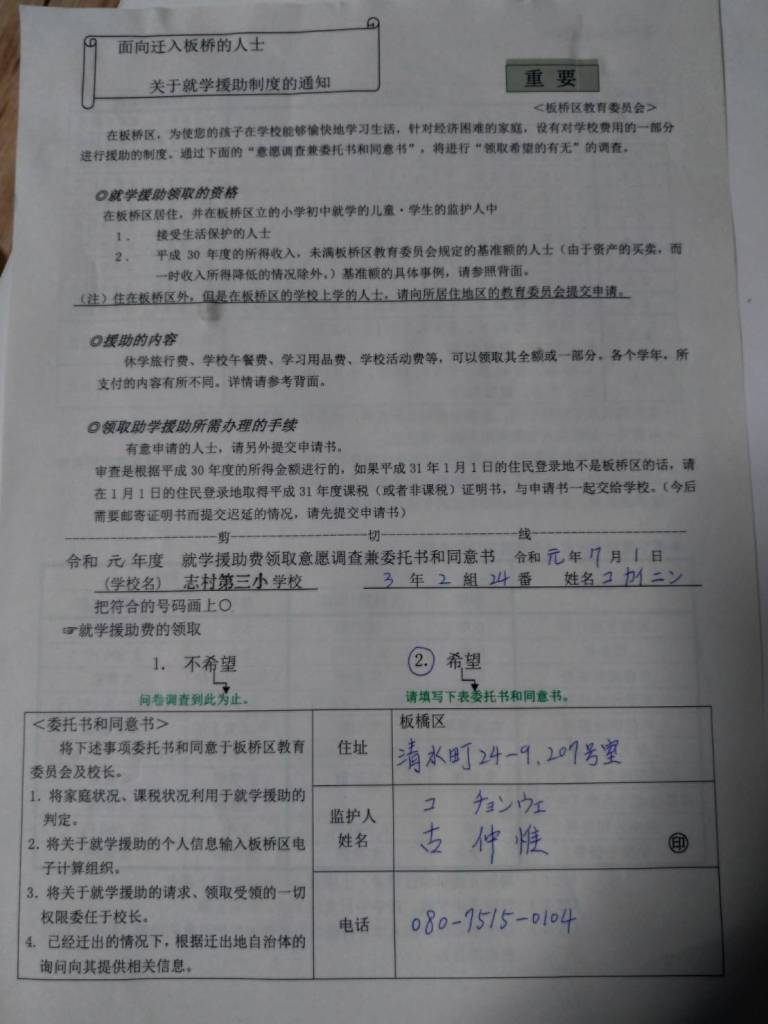 面向迁入板桥的人士
关于就学援助制度的通知
重 要
＜板桥区教育委员会＞
在板桥区，为使您的孩子在学校能够愉快地学习生活，针对经济困难的家庭，设有对学校费用的一部分
进行援助的制度。通过下面的“意愿调查兼委托书和同意书”，将进行“领取希望的有无”的调查。
◎就学援助领取的资格
在板桥区居住，并在板桥区立的小学初中就学的儿童·学生的监护人中
1． 接受生活保护的人士
2． 平成 30 年度的所得收入，未满板桥区教育委员会规定的基准额的人士（由于资产的买卖，而
一时收入所得降低的情况除外。）基准额的具体事例，请参照背面。
（注）住在板桥区外，但是在板桥区的学校上学的人士，请向所居住地区的教育委员会提交申请。
◎援助的内容
休学旅行费、学校午餐费、学习用品费、学校活动费等，可以领取其全额或一部分。各个学年，所
支付的内容有所不同。详情请参考背面。
◎领取助学援助所需办理的手续
有意申请的人士，请另外提交申请书。
审查是根据平成 30 年度的所得金额进行的，如果平成 31 年 1 月 1 日的住民登录地不是板桥区的话，请
在 1 月 1 日的住民登录地取得平成 31 年度课税（或者非课税）证明书，与申请书一起交给学校。（今后
需要邮寄证明书而提交迟延的情况，请先提交申请书）
剪 切 线
令和 元 年度 就学援助费领取意愿调查兼委托书和同意书 令和 元 年 7 月 1 日
(学校名) 志村第三小 学校 3 年 2 組 24 番 姓名 コ カイニン
把符合的号码画上○
☞就学援助费的领取
1. 不希望 2. 希望
问卷调查到此为止。 请填写下表委托书和同意书。
＜委托书和同意书＞
将下述事项委托书和同意于板桥区教育
委员会及校长。
1. 将家庭状况、课税状况利用于就学援助的
判定。
2. 将关于就学援助的个人信息输入板桥区电
子计算组织。
3. 将关于就学援助的请求、领取受领的一切
权限委任于校长。
4. 已经迁出的情况下，根据迁出地自治体的
询问向其提供相关信息。
住址
板橋区
清水町24-9，207号室
监护人
姓名
コ チョンウェ
古 仲惟
㊞
电话
080-7515-0104